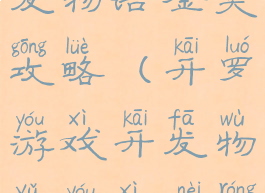 发物语金美
gōng lüè kāi luó
攻略（开罗
yóu xì kāi fā wù
游戏开发物
yǔ yóu xì nèi róng